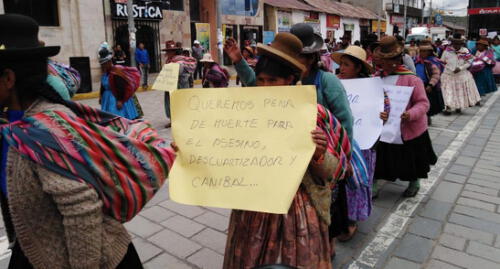 RUSTICA
QUEREMOS PENA
DE MUERTE PARA
EL ASESINO,
DESCUARTIZADOR Y
CANIBAL...